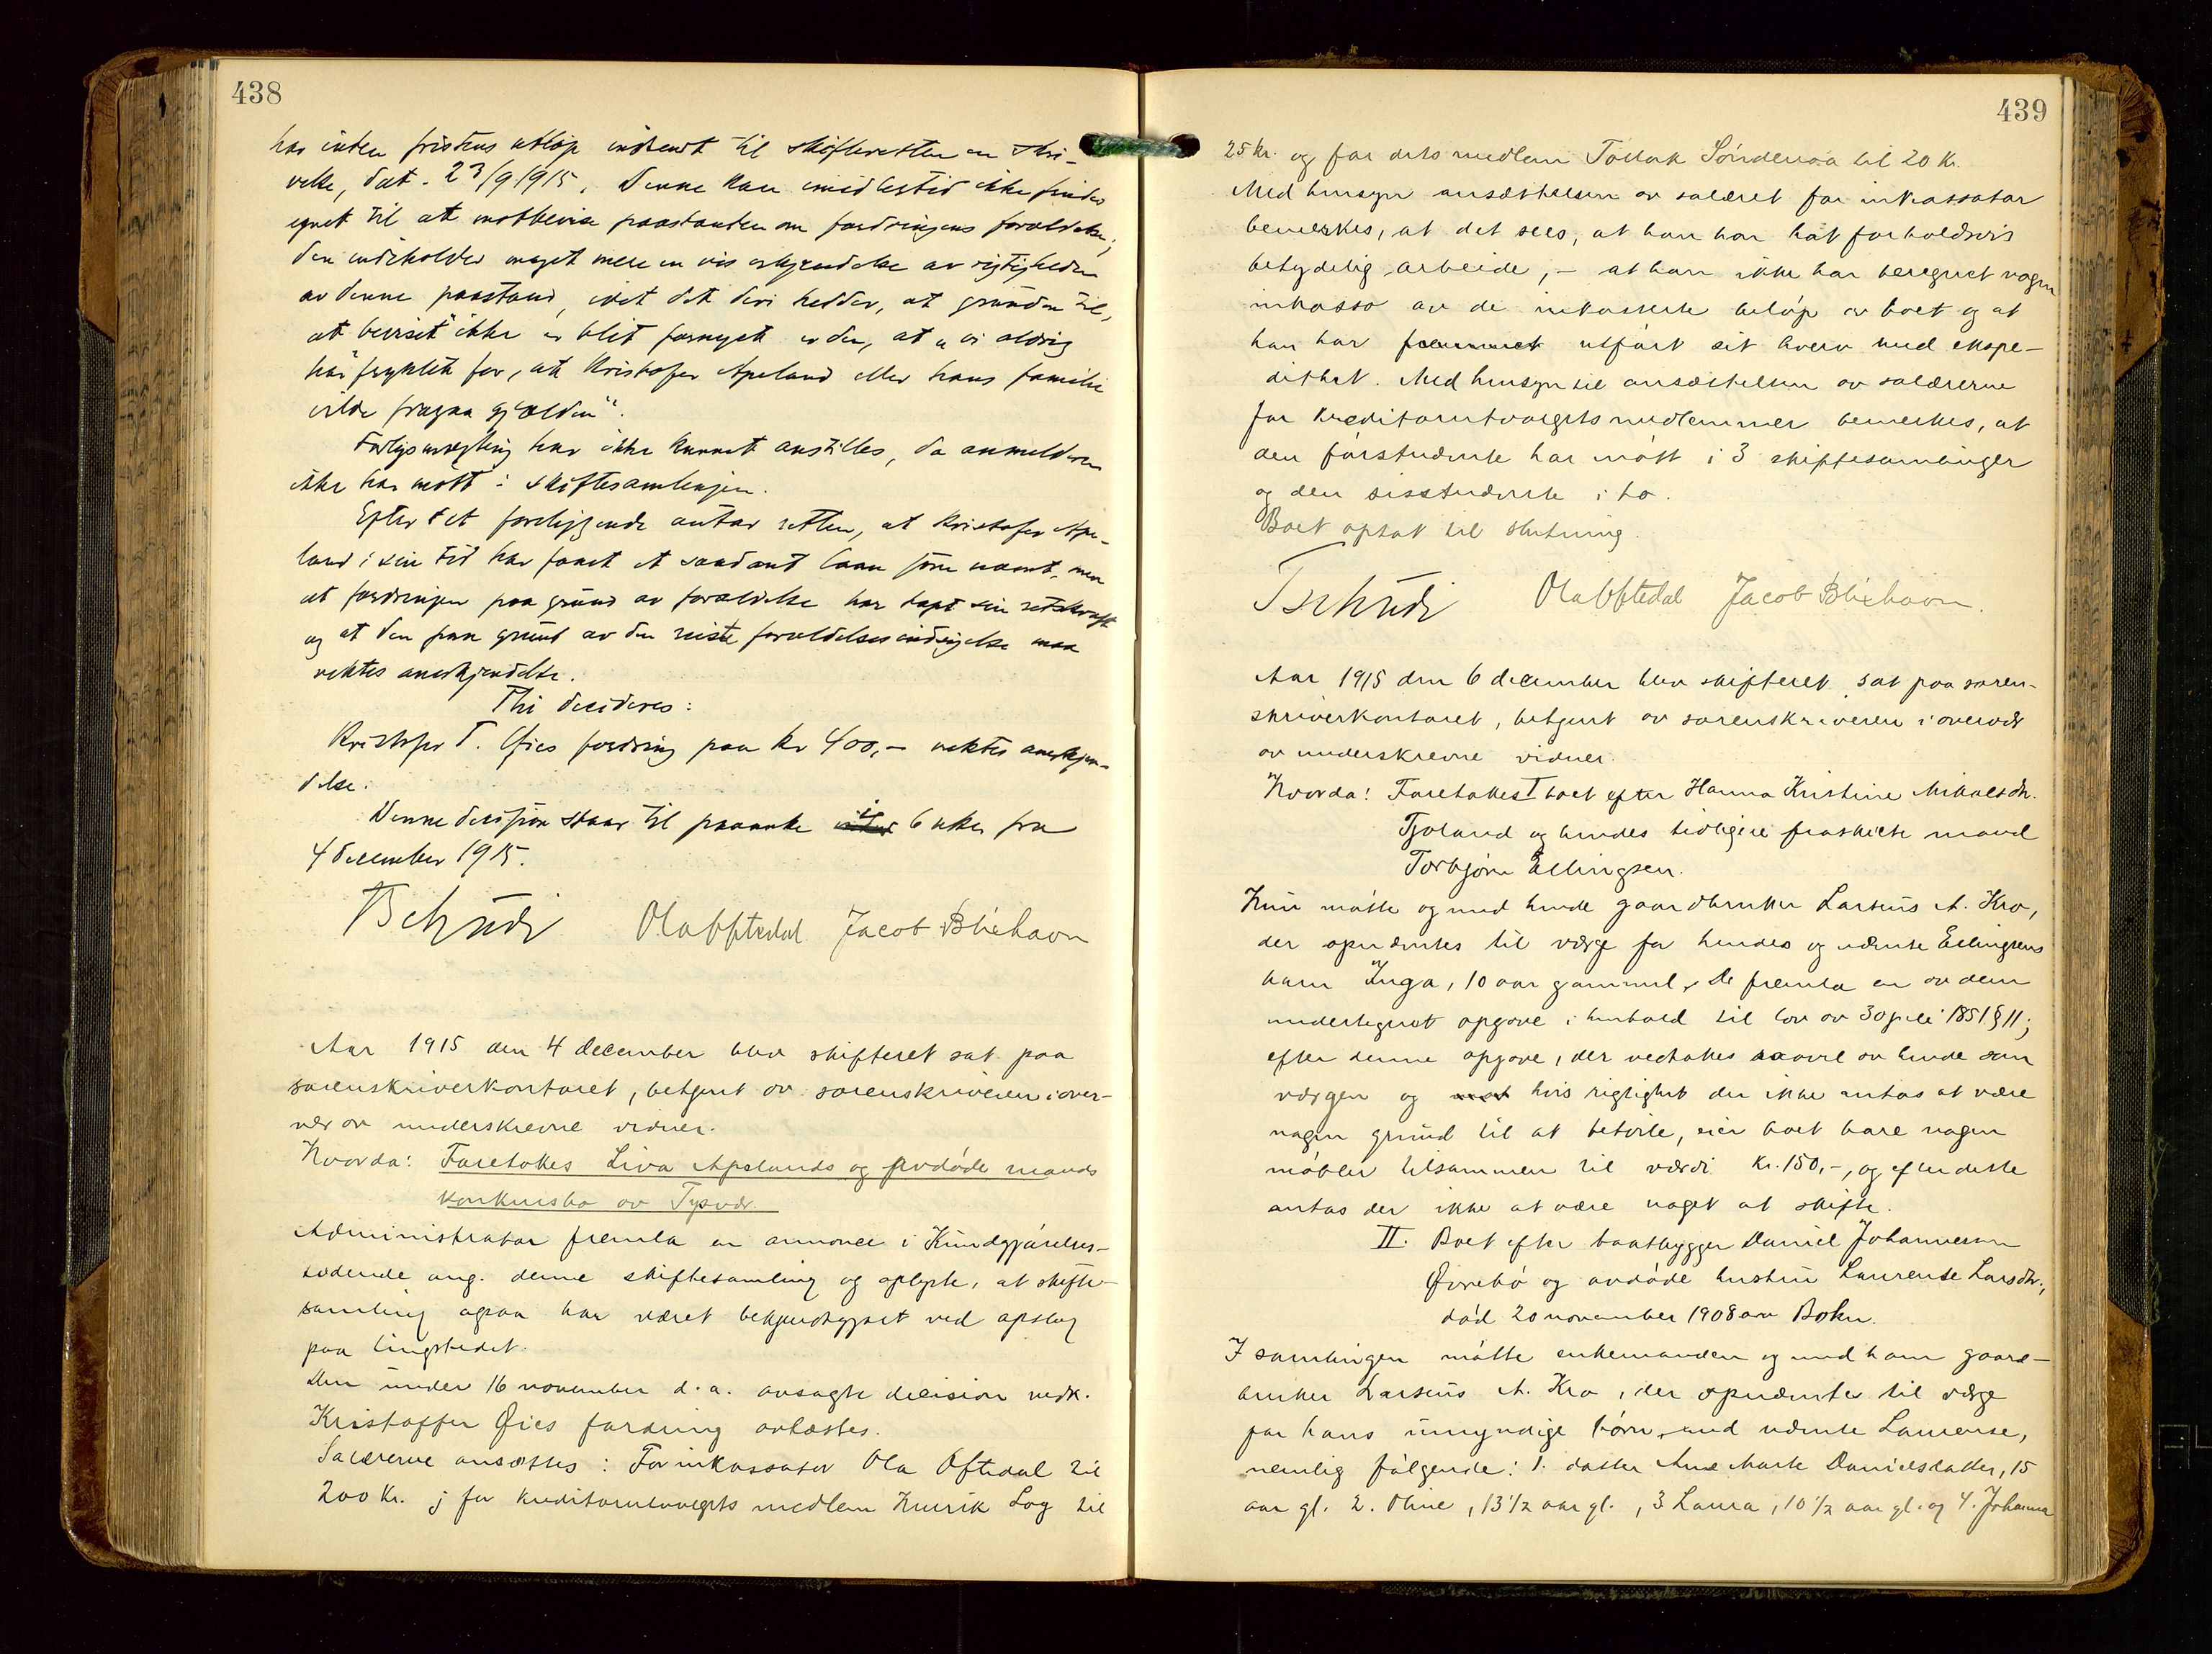 438
har inden fristens utløp indsendt til skifteretten en skri-
velse, dat. 23/9 1915. Denne kan imidlertid ikke findes
egnet til at motbevise paastanden om fordringens forældelse;
den indeholder meget mere en vis erkjendelse av rigtigheden
av denne paastand, idet det deri hedder, at grunden til,
at beviset "ikke er blit fornyet er den, at vi aldrig
har frygtet for, at Kristofer Apeland eller hans familie
vilde fragaa gjælden".
Forligsmægling har ikke kunnet anstilles, da anmelderen
ikke har møtt i skiftesamlingen.
Efter det foreliggende antar retten, at Kristofer Ape-
land i sin tid har faaet et saadant laan som nævnt, men
at fordringen paa grund av forældelse har tapt sin retskraft
og at den paa grund av den reiste forældelsesindsigelse maa
nektes anerkjendelse.
Thi decideres:
Kristofer T. Øies fordring paa kr 400,- nektes anerkjen-
delse.
Denne decisjon staar til paaanke i 6 uker fra
4 december 1915.
Tschudi Ola Oftedal Jacob Blikhavn
Aar 1915 den 4 december blev skifteret sat paa
sorenskriverkontoret, betjent av sorenskriveren i over-
vær av underskrevne vidner.
Hvorda: Foretokes Liva Apelands og avdøde mands
konkursbo av Tysvær.
Administrator fremla en annonce i Kundgjørelses-
tidende ang. denne skiftesamling og oplyste, at skifte-
samling ogsaa har været bekjendtgjort ved opslag
paa tingstedet.
Den under 16 november d. a. avsagte decision vedk.
Kristoffer Øies fordring oplæstes.
Salærerne ansættes: For inkassator Ola Oftedal til
200 Kr. ; for kreditorutvalgets medlem Henrik Log til
439
25 kr. og for dets medlem Tollak Søndenaa til 20 kr.
Med hensyn ansættelsen av salæret for inkassator
bemerkes, at det sees, at han har hat forholdsvis
betydelig arbeide, - at han ikke har beregnet nogen
inkasso av de inkasserte beløp av boet og at
han har utført sit hverv med ekspe-
dithet. Med hensyn til ansættelsen av salærerne
for kreditorutvalgets medlemmer bemerkes, at
den førstnævnte har møtt i 3 skiftesamlinger
og den sisstnævnte i to.
Boet optat til slutning.
Tschudi Ola Oftedal Jacob Blikhavn.
Aar 1915 den 6 december blev skifteret sat paa soren-
skriverkontoret, betjent av sorenskriveren i overvær
av underskrevne vidner.
Hvorda: Foretokes I boet efter Hanna Kristine Mikalsdtr.
Tjoland og hendes tidligere fraskilte mand
Torbjørn Ellingsen.
Hun møtte og med hende gaardbruker Larsius A. Kro,
der opnævntes til værge for hendes og nævnte Ellingsens
barn Inga, 10 aar gammel. De fremla en av dem
undertegnet opgave i henhold til lov av 30 juli 1851 § 11;
efter denne opgave, der vedtokes saavel av hende som
værgen og hvis rigtighet der ikke antas at være
nogen grund til at betvile, eier boet bare nogen
møbler tilsammen til værdi kr. 150,-, og efter dette
antas der ikke at være noget at skifte.
II. Boet efter baatbygger Daniel Johannesen
Øvrebø og avdøde hustru Laurense Larsdtr.,
død 20 november 1908 av Bokn.
I samlingen møtte enkemanden og med ham gaard-
bruker Larsius A. Kro, der opnævntes til værge
for hans umyndige børn med nævnte Laurense,
nemlig følgende: 1. datter Ane Marte Danielsdatter, 15
aar gl. 2. Oline, 13 1/2 aar gl., 3 Laura, 10 1/2 aar gl. og 4. Johanna